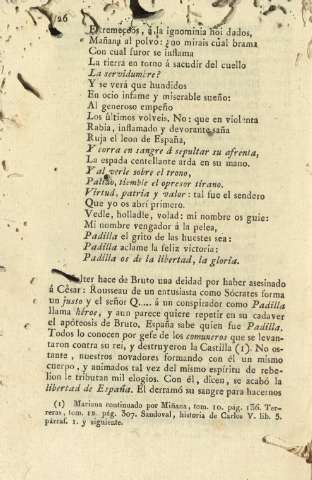 26
Estremeceos, á la ignominia hoi dados,
Mañana al polvo: ¿no mirais cuál brama
Con cual furor se inflama
La tierra en torno á sacudir del cuello
La servidumbre?
Y se verá que hundidos
En ocio infame y miserable sueño:
Al generoso empeño
Los últimos volveis. No: que en violenta
Rabia, inflamado y devorante saña
Ruja el leon de España,
Y corra en sangre á sepultar su afrenta,
La espada centellante arda en su mano.
Y al verle sobre el trono,
Pálido, tiemble el opresor tirano.
Virtud, patria y valor: tal fue el sendero
Que yo os abrí primero.
Vedle, holladle, volad: mi nombre os guie:
Mi nombre vengador á la pelea,
Padilla el grito de las huestes sea:
Padilla aclame la feliz victoria:
Padilla os de la libertad, la gloria.
Volter hace de Bruto una deidad por haber asesinado
á César: Rousseau de un entusiasta como Sócrates forma
un justo y el señor Q..... á un conspirador como Padilla
llama héroe, y aun parece quiere repetir en su cadaver
el apóteosis de Bruto. España sabe quien fue Padilla.
Todos lo conocen por gefe de los comuneros que se levan-
taron contra su rei, y destruyeron la Castilla (1). No os-
tante, nuestros novadores formando con él un mismo
cuerpo, y animados tal vez del mismo espíritu de rebe-
lion le tributan mil elogios. Con él, dicen, se acabó la
libertad de España. Él derramó su sangre para hacernos
(1) Mariana continuado por Miñana, tom. 10. pág. 136. Ter-
reras, tom. 12. pág. 307. Sandoval, historia de Carlos V. lib. 5.
párraf. 1. y siguiente.